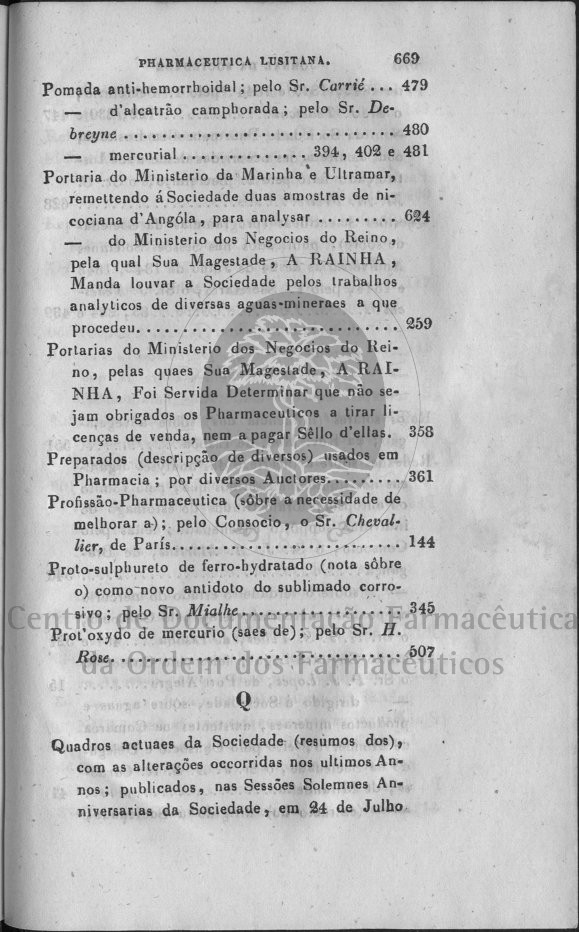 PHARMACEUTICA LUSITANA. 669
Pomada anti-hemorrhoidal; pelo Sr. Carrié ... 479
— d'alcatrão camphorada; pelo Sr. De-
breyne ............................. 480
— mercurial .............. 394, 402 e 481
Portaria do Ministerio da Marinha e Ultramar,
remettendo á Sociedade duas amostras de ni-
cociana d'Angóla, para analysar ......... 624
— do Ministerio dos Negocios do Reino,
pela qual Sua Magestade, A RAINHA,
Manda louvar a Sociedade pelos trabalhos
analyticos de diversas aguas-mineraes a que
procedeu............................ 259
Portarias do Ministerio dos Negocios do Rei-
no, pelas quaes Sua Magestade, A RAI-
NHA, Foi Servida Determinar que não se-
jam obrigados os Pharmaceuticos a tirar li-
cenças de venda, nem a pagar Sêllo d'ellas. 358
Preparados (descripção de diversos) usados em
Pharmacia; por diversos Auctores......... 361
Profissão-Pharmaceutica (sôbre a necessidade de
melhorar a); pelo Consocio, o Sr. Cheval-
lier, de París.......................... 144
Proto-sulphureto de ferro-hydratado (nota sôbre
o) como novo antidoto do sublimado corro-
sivo; pelo Sr. Mialhe .................. 345
Prot'oxydo de mercurio (saes de); pelo Sr. H.
Rose............................... 507
Q
Quadros actuaes da Sociedade (resumos dos),
com as alterações occorridas nos ultimos An-
nos; publicados, nas Sessões Solemnes An-
niversarias da Sociedade, em 24 de Julho
Centro de Documentação Farmacêutica
da Ordem dos Farmacêuticos